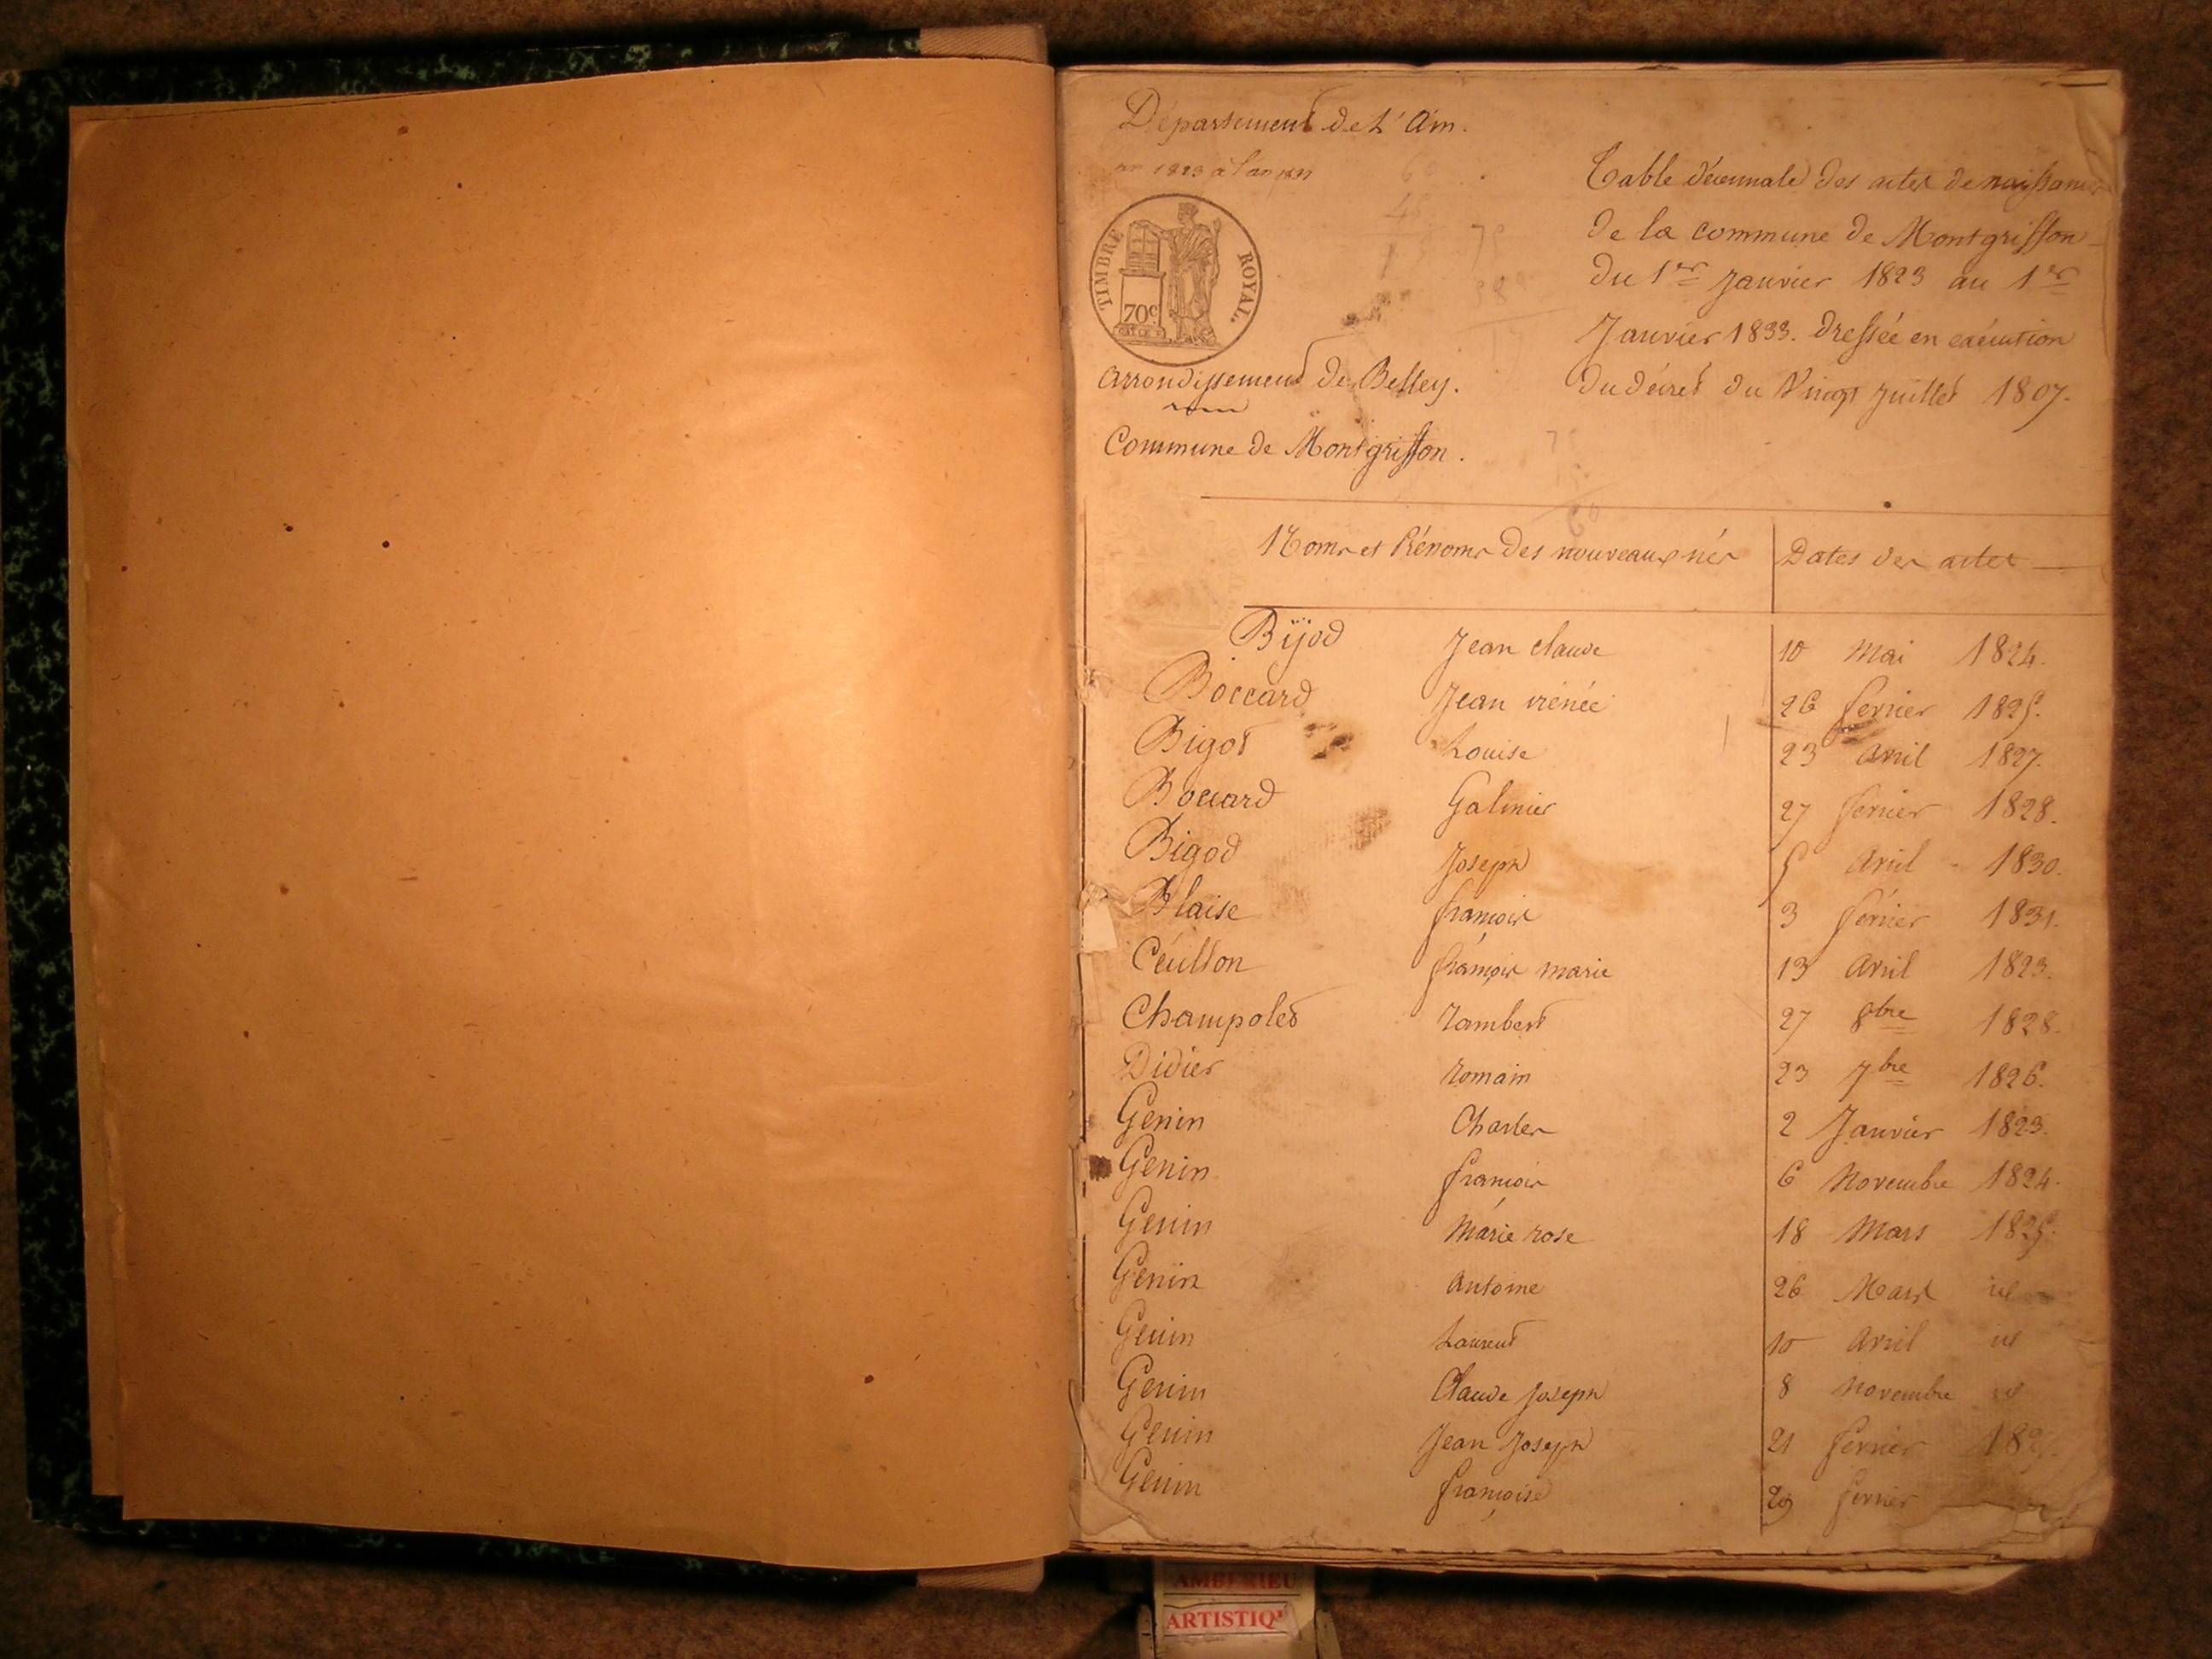 Département de L'Ain.
an 1823 à l'an 1833
TIMBRE ROYAL.
70c
Arrondissement de Belley.
Commune de Montgriffon.
Table décennale des actes de naissances
de la commune de Montgriffon
du 1er Janvier 1823 au 1er
Janvier 1833. dressée en exécution
du décret du Vingt Juillet 1807.
Noms et Prénoms des nouveaux nés Dates des actes
Bijod Jean claude 10 Mai 1824.
Boccard Jean irénée 26 fevrier 1825.
Bigot Louise 23 avril 1827.
Boccard Galmier 27 fevrier 1828.
Bigod Joseph 5 avril 1830.
Blaise françois 3 février 1831.
Ceuillon françois marie 13 avril 1823.
Champolet rambert 27 8bre 1828.
Didier romain 23 7bre 1826.
Genin Charles 2 Janvier 1823.
Genin françois 6 Novembre 1824.
Genin Marie rose 18 Mars 1825.
Genin Antoine 26 Mars id
Genin Laurent 10 avril id
Genin Claude Joseph 8 novembre id
Genin Jean Joseph 21 fevrier
Genin françoise 29 fevrier
AMBERIEU
ARTISTIQ